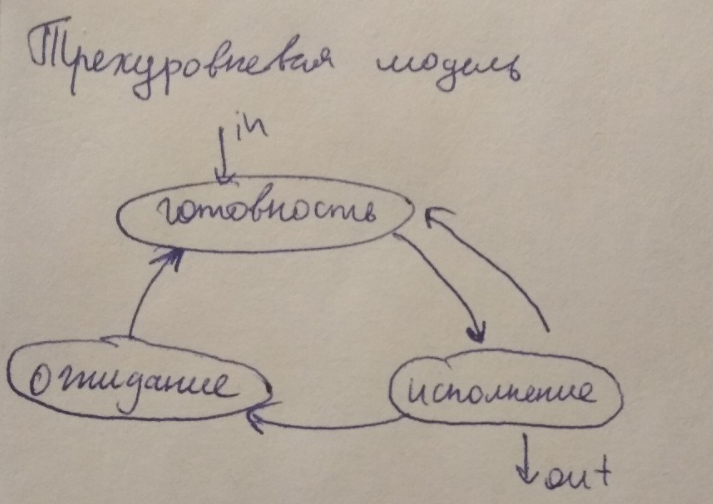 Трехуровневая модель
in
готовность
ожидание
исполнение
out